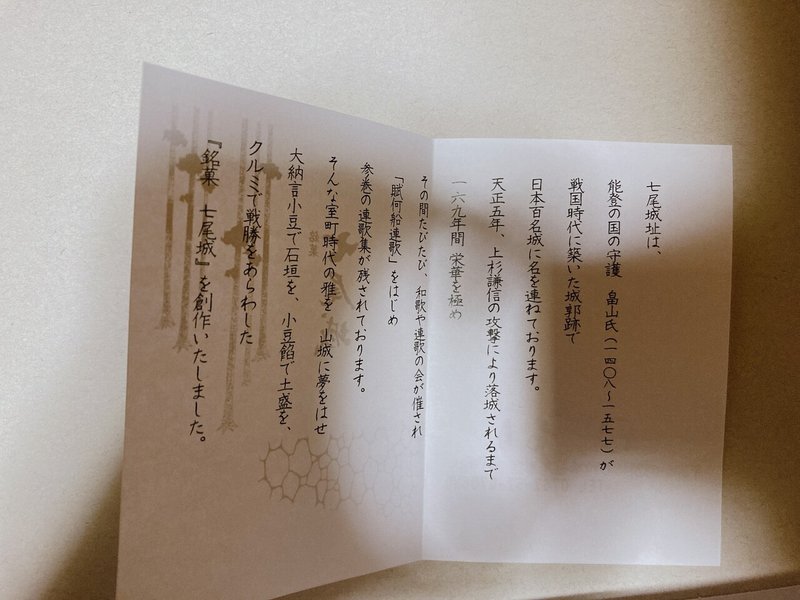 七尾城址は、
能登の国の守護　畠山氏(一四〇八〜一五七七)が
戦国時代に築いた城郭跡で
日本百名城に名を連ねております。
天正五年、上杉謙信の攻撃により落城されるまで
一六九年間　栄華を極め
その間たびたび、和歌や連歌の会が催され
「賦何船連歌」をはじめ
参巻の連歌集が残されております。
そんな室町時代の雅を　山城に夢をはせ
大納言小豆で石垣を、小豆餡で土盛を、
クルミで戦勝をあらわした
『銘菓　七尾城』を創作いたしました。